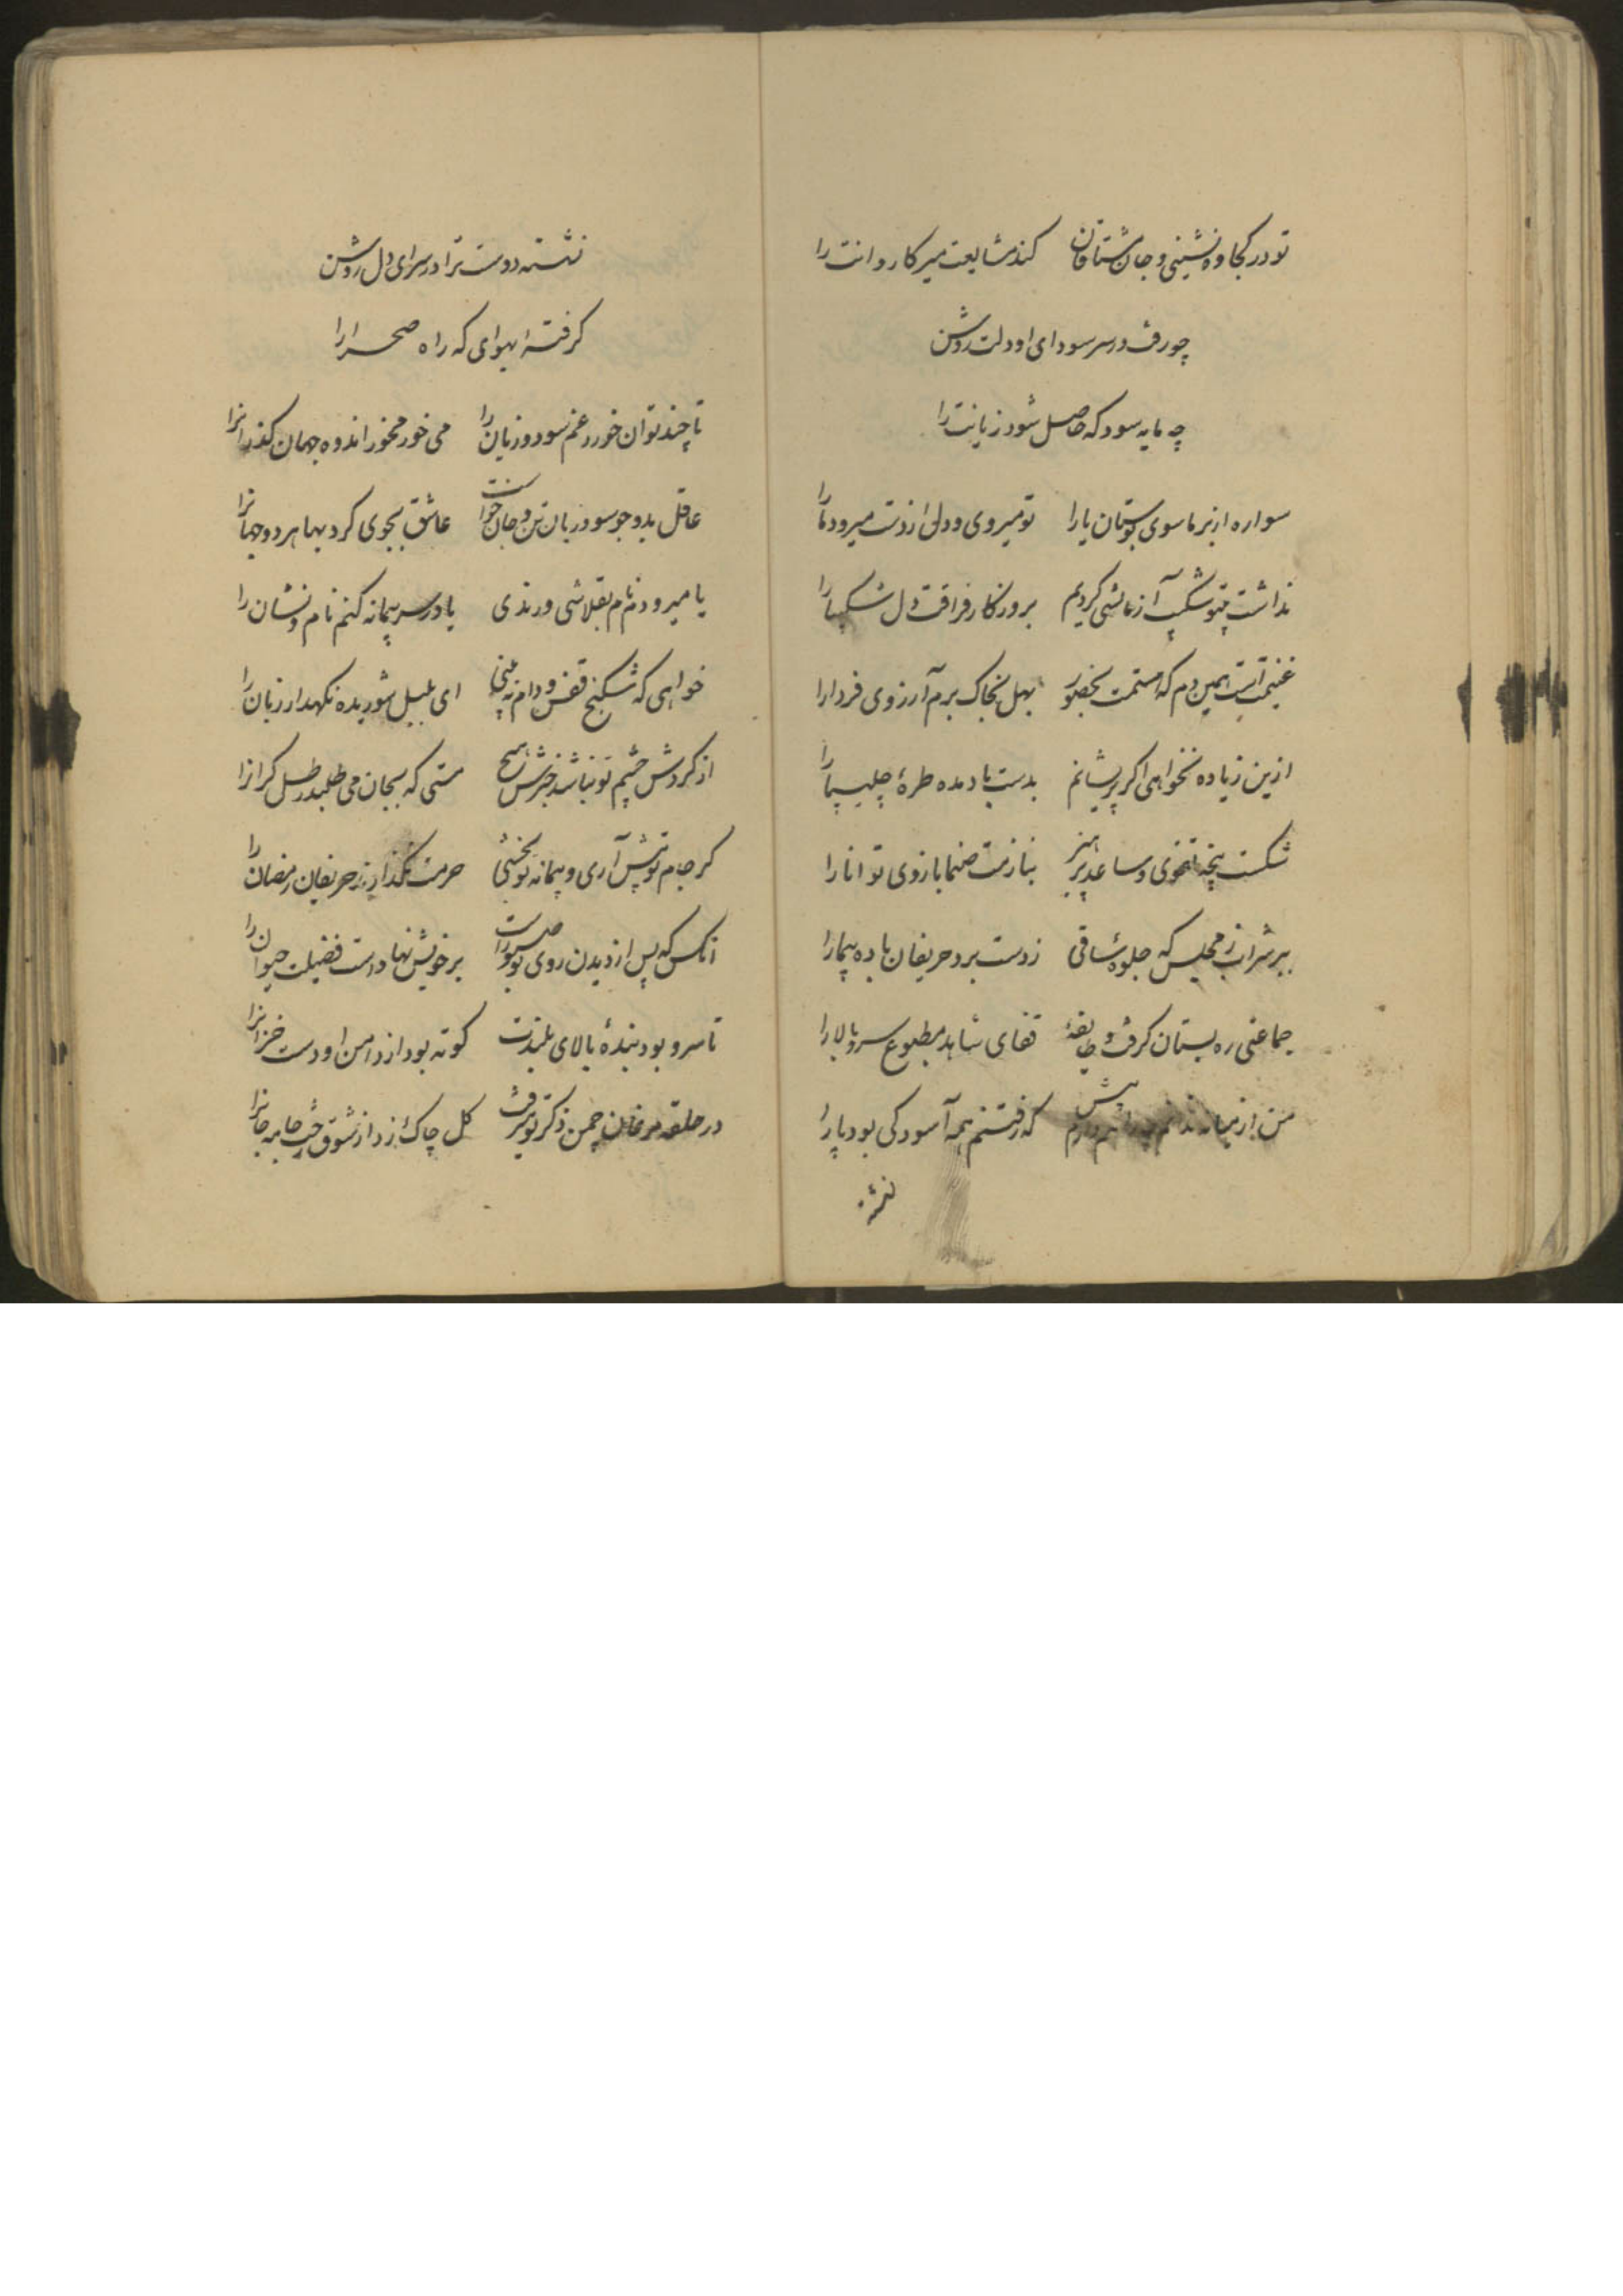 تو در کجاوه نشینی و جان مشتاقان کند مشایعت میر کاروانت را
چو رفت در سر سودای او دلت روشن
چه مایه سود که حاصل شود زیانت را
سواره از بر ما سوی بوستان یارا تو میروی و دل از دست میرود ما را
نداشت بیتو شکیب آزمایشی کردیم بروزگار فراقت دل شکیبا را
غنیمت است همین دم که هستمت بحضور بهل بخاک برم آرزوی فردا را
ازین زیاده نخواهی اگر پریشانم بدست باد مده طره چلیپا را
شکست پنجه تقوی و ساعد پرهیز بنازمت صنما بازوی توانا را
ببر شراب ز مجلس که جلوه ساقی ز دست برد حریفان باده پیما را
جماعتی ره بستان گرفت و طایفهٔ قفای شاهد مطبوع سرو بالا را
من از میانه ندانم چه پیش دارم که رفتنم همه آسودگی بود پا را
نشسته
نشسته دوست ترا در سرای دل روشن
گرفته ایهوای که راه صحرا را
تا چند توان خورد غم سود و زیان را می خور مخور اندوه جهان گذرانرا
عاقل بدو جو سود ز بان تن و جان خواست عاشق بجوی کرد بها هر دو جهانرا
یا میرودم نام بقلاشی و رندی یا در سر پیمانه کنم نام و نشان را
خواهی که شکنج قفس و دام نه بینی ای بلبل شوریده نگهدار زبان را
از گردش چشم تو نباشد خبرش هیچ مستی که بجان می طلبد رطل گرانرا
گر جام تو پیش آری و پیمانه تو بخشی حرمت نگذارند حریفان رمضان را
انکس که پس از دیدن روی تو صبور است بر خویش نهاد است فضیلت حیوان را
تا سرو بود بندهٔ بالای بلندت کوته بود از دامن او دست خزانرا
در حلقه مرغان چمن ذکر تو میرفت گل چاک زد از شوق رخت جامه جانرا